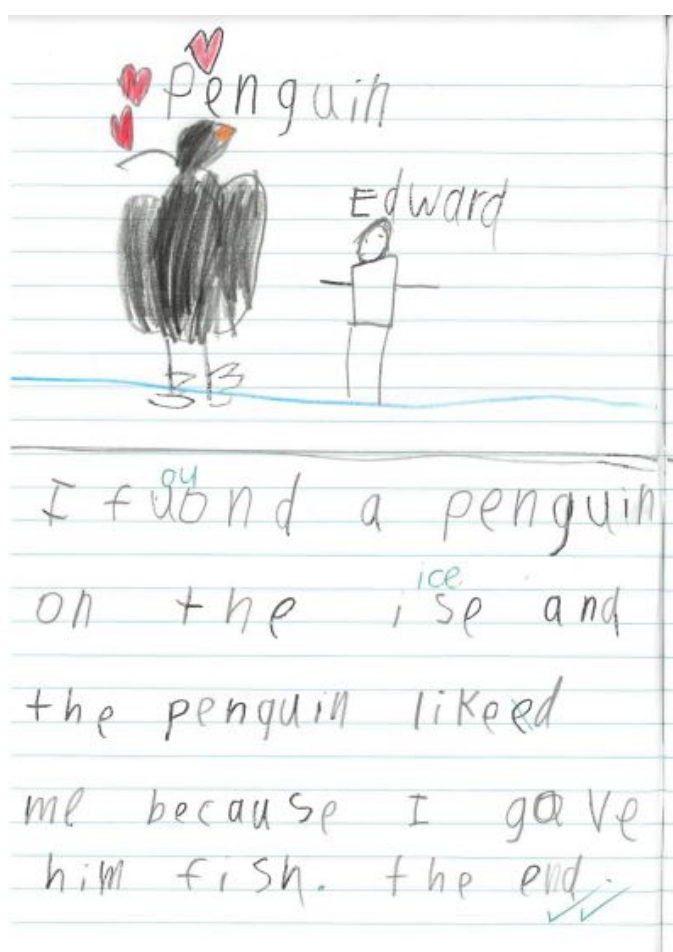 Penguin
Edward
ou
I fuond a penguin
ice
on the ise and
the penguin likeed
me because I gave
him fish. the end.